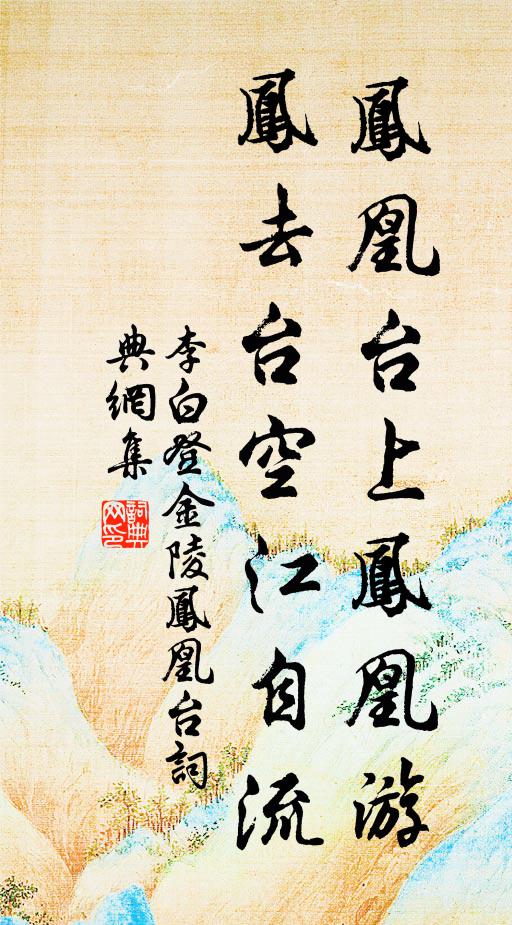 鳳凰台上鳳凰游
鳳去台空江自流
李白登金陵鳳凰台詞
典網集
詞典网印